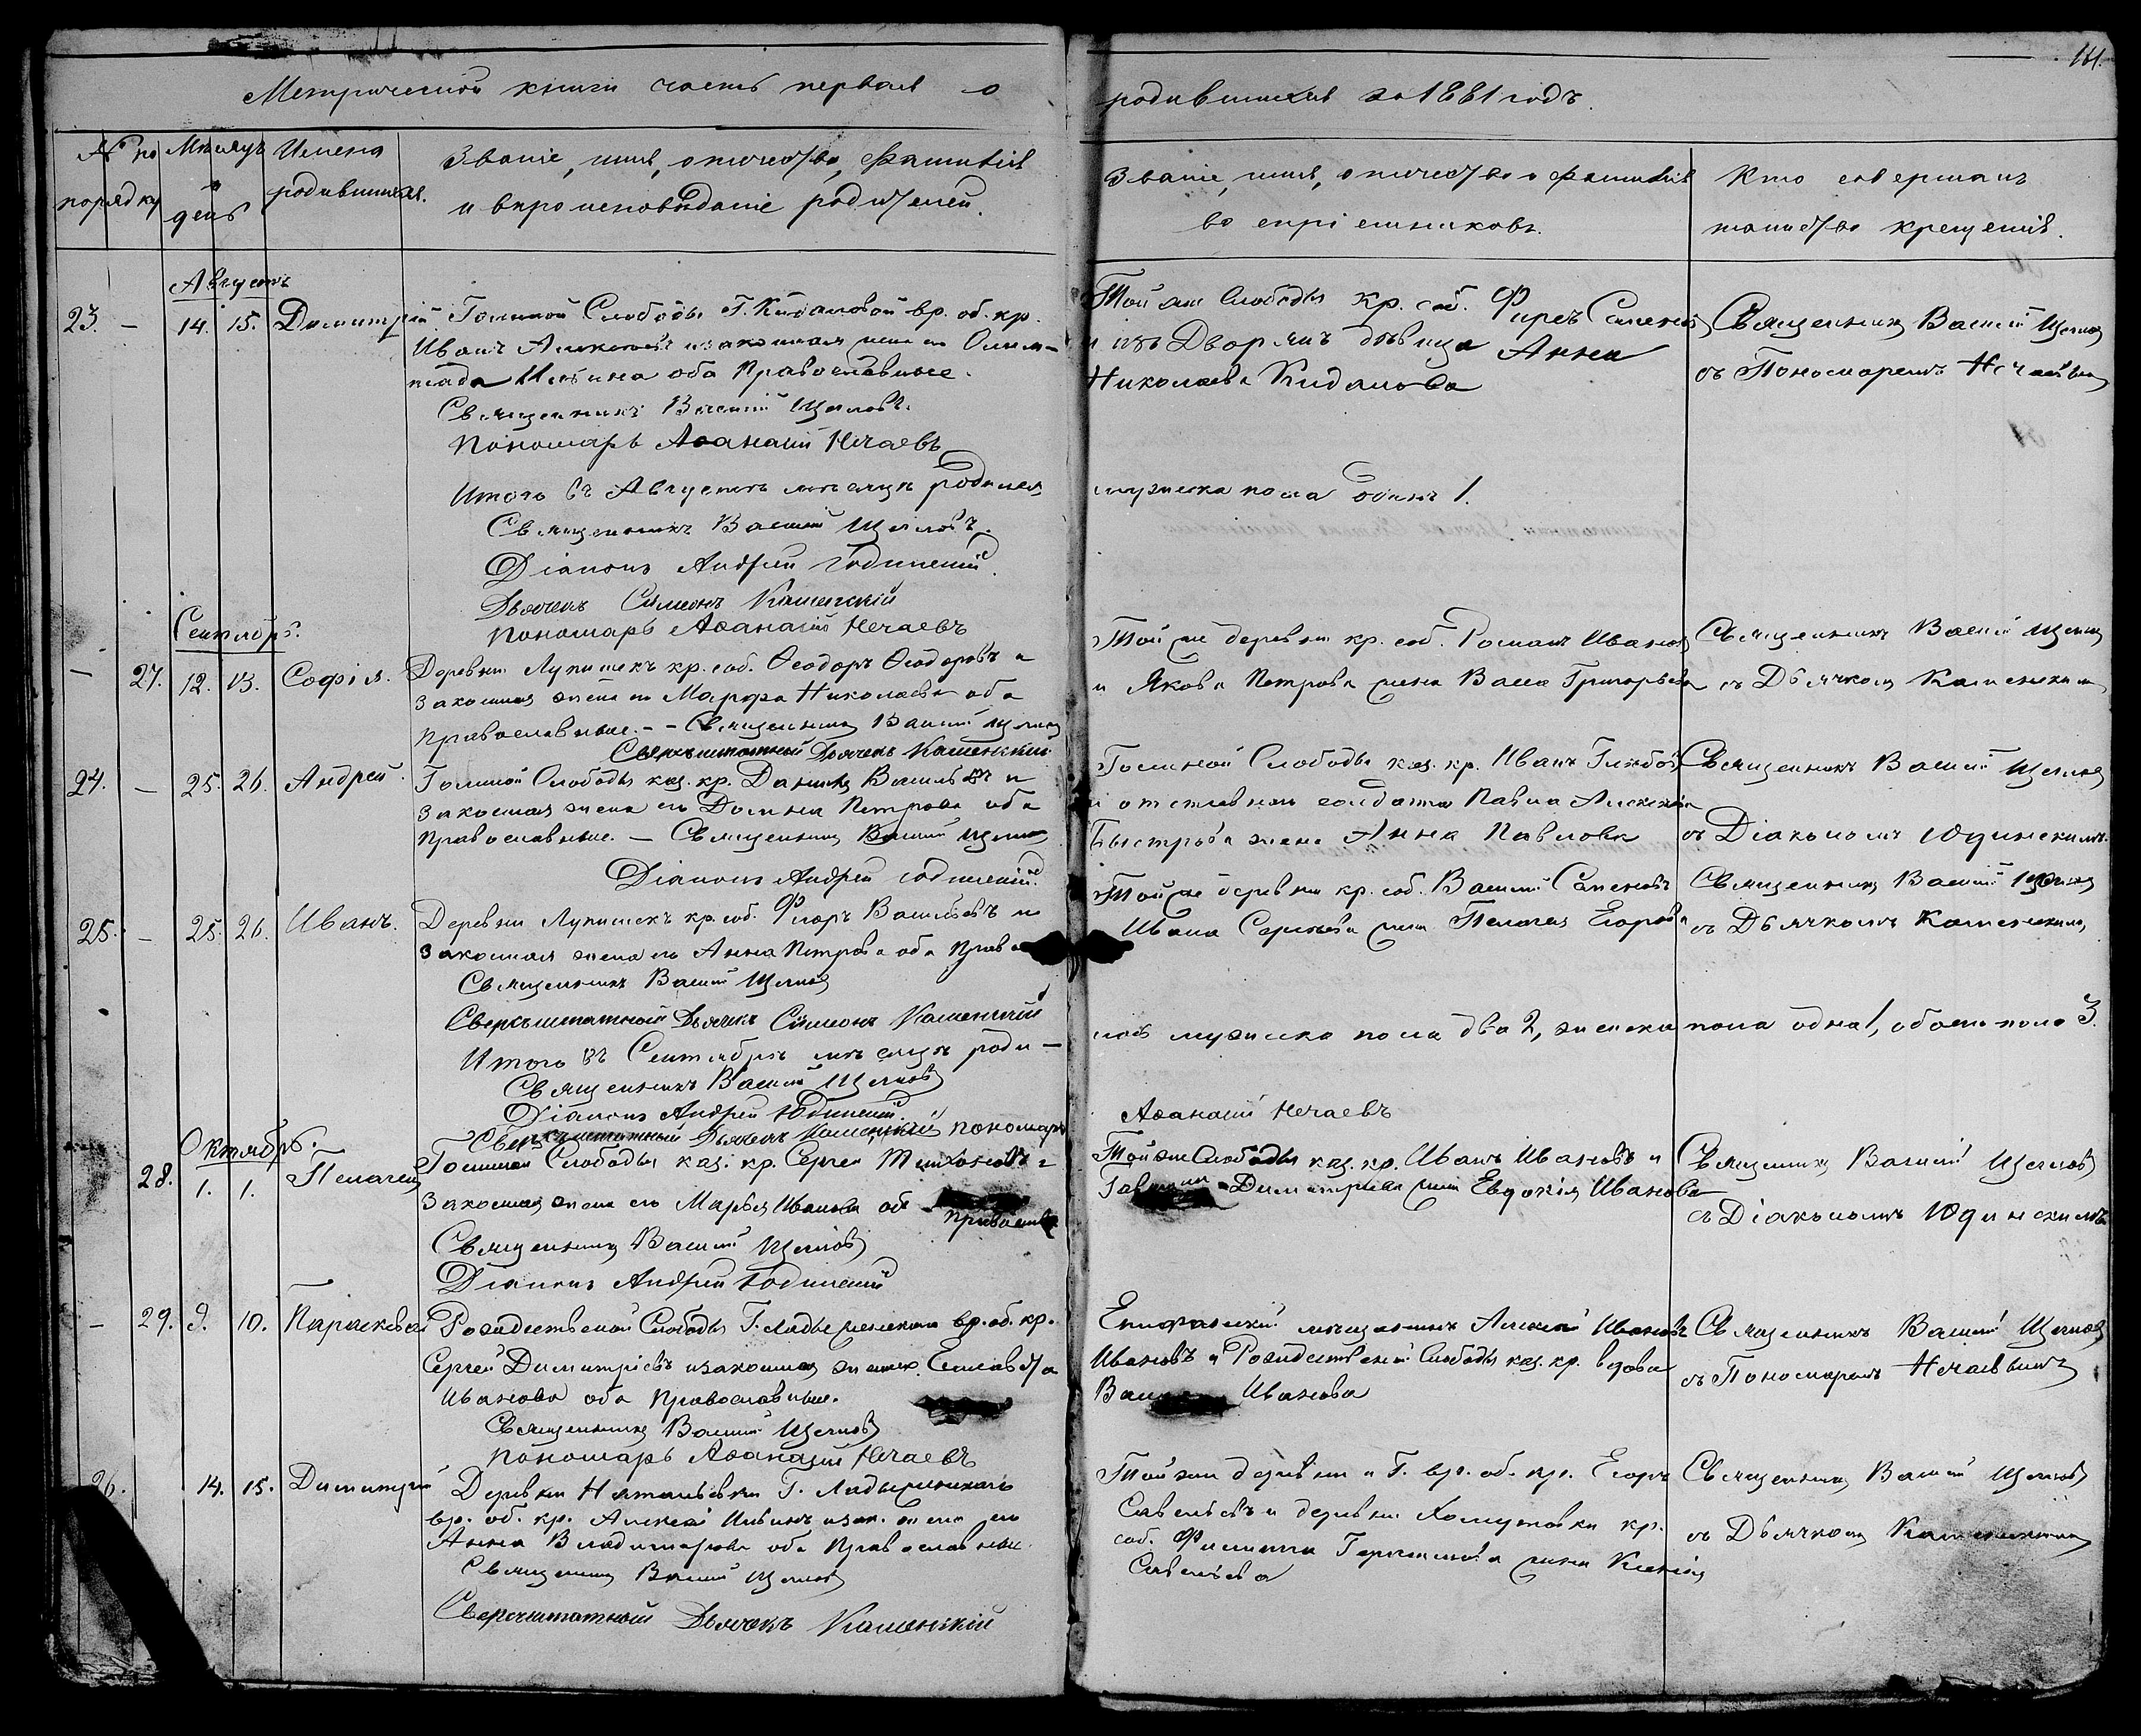 161.
Метрической книги часть первая о родившихся за 1881 годъ.
№ по порядку
Мѣсяцъ и день
Имена родившихся.
Званіе, имя, отчество, фамилія
и вѣроисповѣданіе родителей.
Званіе, имя, отчество и фамилія
воспріемниковъ.
Кто совершалъ
таинство крещенія.
Августъ
23. — 14. 15. Димитрій.
Слободы Г. Кидаловой вр. об. кр.
Иванъ Алексѣевъ и законная жена его Олим-
піада Ильина оба Православные.
Священникъ Василій
Пономарь Аѳанасій Нечаевъ
Той же Слободы кр. соб. Фирсъ Семеновъ
и изъ Дворянъ дѣвица Анна
Николаева Кидалова
Священникъ Василій
съ Пономаремъ Нечаевымъ
Итого въ Августѣ мѣсяцѣ родился
мужеска пола одинъ 1.
Священникъ Василій
Діаконъ Андрей Юдинскій.
Дьячекъ Симеонъ Каменскій
Пономарь Аѳанасій Нечаевъ
Сентябрь.
— 27. 12. 13. Софія.
Деревни кр. соб. Ѳеодоръ Ѳеодоровъ и
законная жена его Марфа Николаева оба
православные. — Священникъ Василій
Сверхштатный Дьячекъ Каменскій
Той же деревни кр. соб. Романъ Ивановъ
и Якова Петрова жена Васса Григорьева
Священникъ Василій
съ Дьячкомъ Каменскимъ
24. — 25. 26. Андрей.
Слободы каз. кр. Даниилъ Васильевъ и
законная жена его Домна Петрова оба
Православные. — Священникъ Василій
Діаконъ Андрей Юдинскій.
Слободы каз. кр. Иванъ Глѣбовъ
и отставнаго солдата Павла Алексѣева
Быстрова жена Анна Павлова
Священникъ Василій
съ Діакономъ Юдинскимъ.
25. — 25. 26. Иванъ.
Деревни кр. соб. Васильевъ и
законная жена его Анна Петрова оба Прав
Священникъ Василій
Сверхштатный Дьячекъ Симеонъ Каменскій
Той же деревни кр. соб. Василій Семеновъ
Ивана Сергѣева жена Пелагея Егорова
Священникъ Василій
съ Дьячкомъ Каменскимъ
Итого въ Сентябрѣ мѣсяцѣ роди-
лось мужеска пола два 2, женска пола одна 1, обоего пола 3.
Священникъ Василій
Діаконъ Андрей Юдинскій.
Сверхштатный Дьячекъ Каменскій пономарь
Аѳанасій Нечаевъ
Октябрь.
28. 1. 1. Пелагея
Слободы каз. кр. Сергей Тихоновъ и
законная жена его Марья Иванова об
Священникъ Василій
Діаконъ Андрей Юдинскій
Той же Слободы каз. кр. Иванъ Ивановъ и
Димитріева жена Евдокія Иванова
Священникъ Василій
съ Діакономъ Юдинскимъ
— 29. 9. 10. Параскева
Рождественой Слободы Г. вр. об. кр.
Сергей Димитріевъ и законная жена Елисавета
Иванова оба Православные.
Священникъ Василій
Пономарь Аѳанасій Нечаевъ
Епифанскій мѣщанинъ Алексей Ивановъ
Ивановъ и Рождественой Слободы каз. кр. вдова
Иванова
Священникъ Василій
съ Пономаремъ Нечаевымъ
26. 14. 15. Димитрій
Деревни Г.
вр. об. кр. Алексей и зак. жена его
Анна Владимірова оба Православные.
Священникъ Василій
Сверхштатный Дьячекъ Каменскій
Той же деревни и Г. вр. об. кр. Егоръ
Савельевъ и деревни Хомутовки кр.
соб. Филиппа жена Ксенія
Савельева
Священникъ Василій
съ Дьячкомъ Каменскимъ